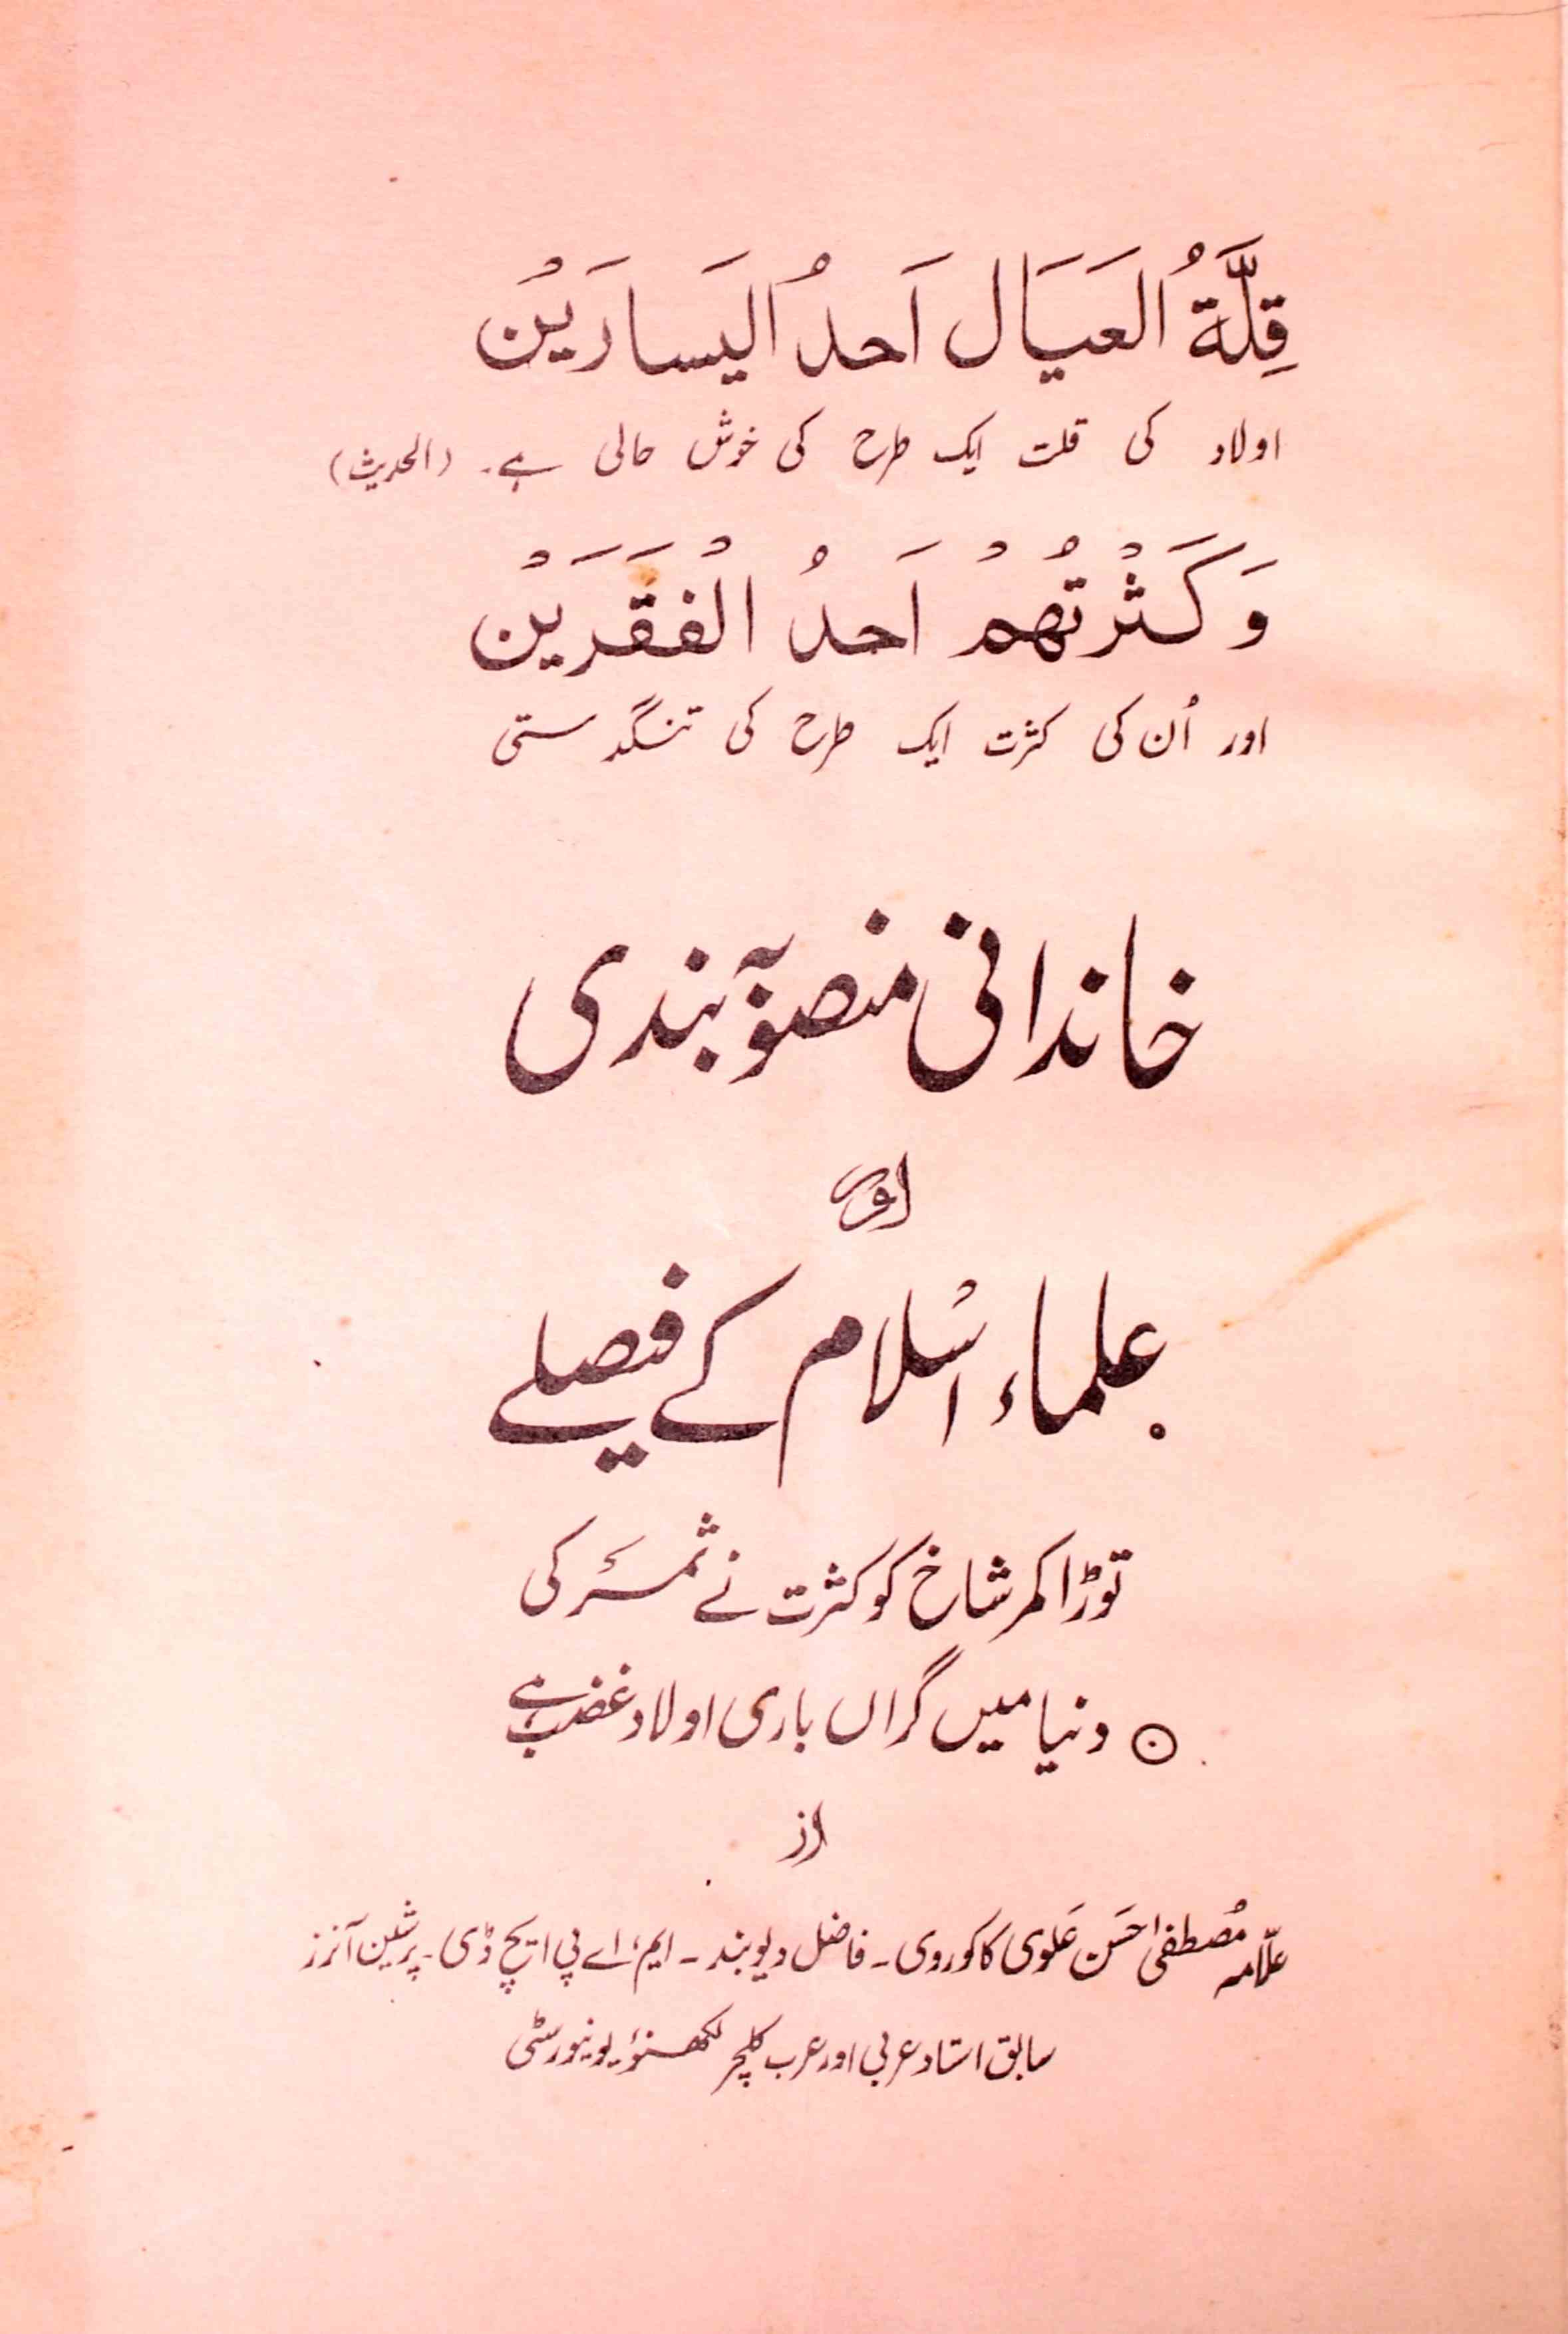 قِلَّةُ العَيَال اَحدُ اليَسارَيْن
اولاد کی قلت ایک طرح کی خوش حالی ہے۔ (الحدیث)
وَكَثْرتُهُمْ اَحدُ الْفقَرَيْن
اور اُن کی کثرت ایک طرح کی تنگدستی
خاندانی منصوبہ بندی
اور
علماء اسْلام کے فیصلے
توڑا کمر شاخ کو کثرت نے ثمَر کی
دنیا میں گراں باری اولاد غضب ہے
از
علّامہ مُصطفی احسَن عَلوی کاکوروی۔ فاضل دیوبند۔ ایم، اے پی ایچ ڈی۔ پرشین آنرز
سابق استاد عربی اور عرب کلچر لکھنؤ یونیورسٹی